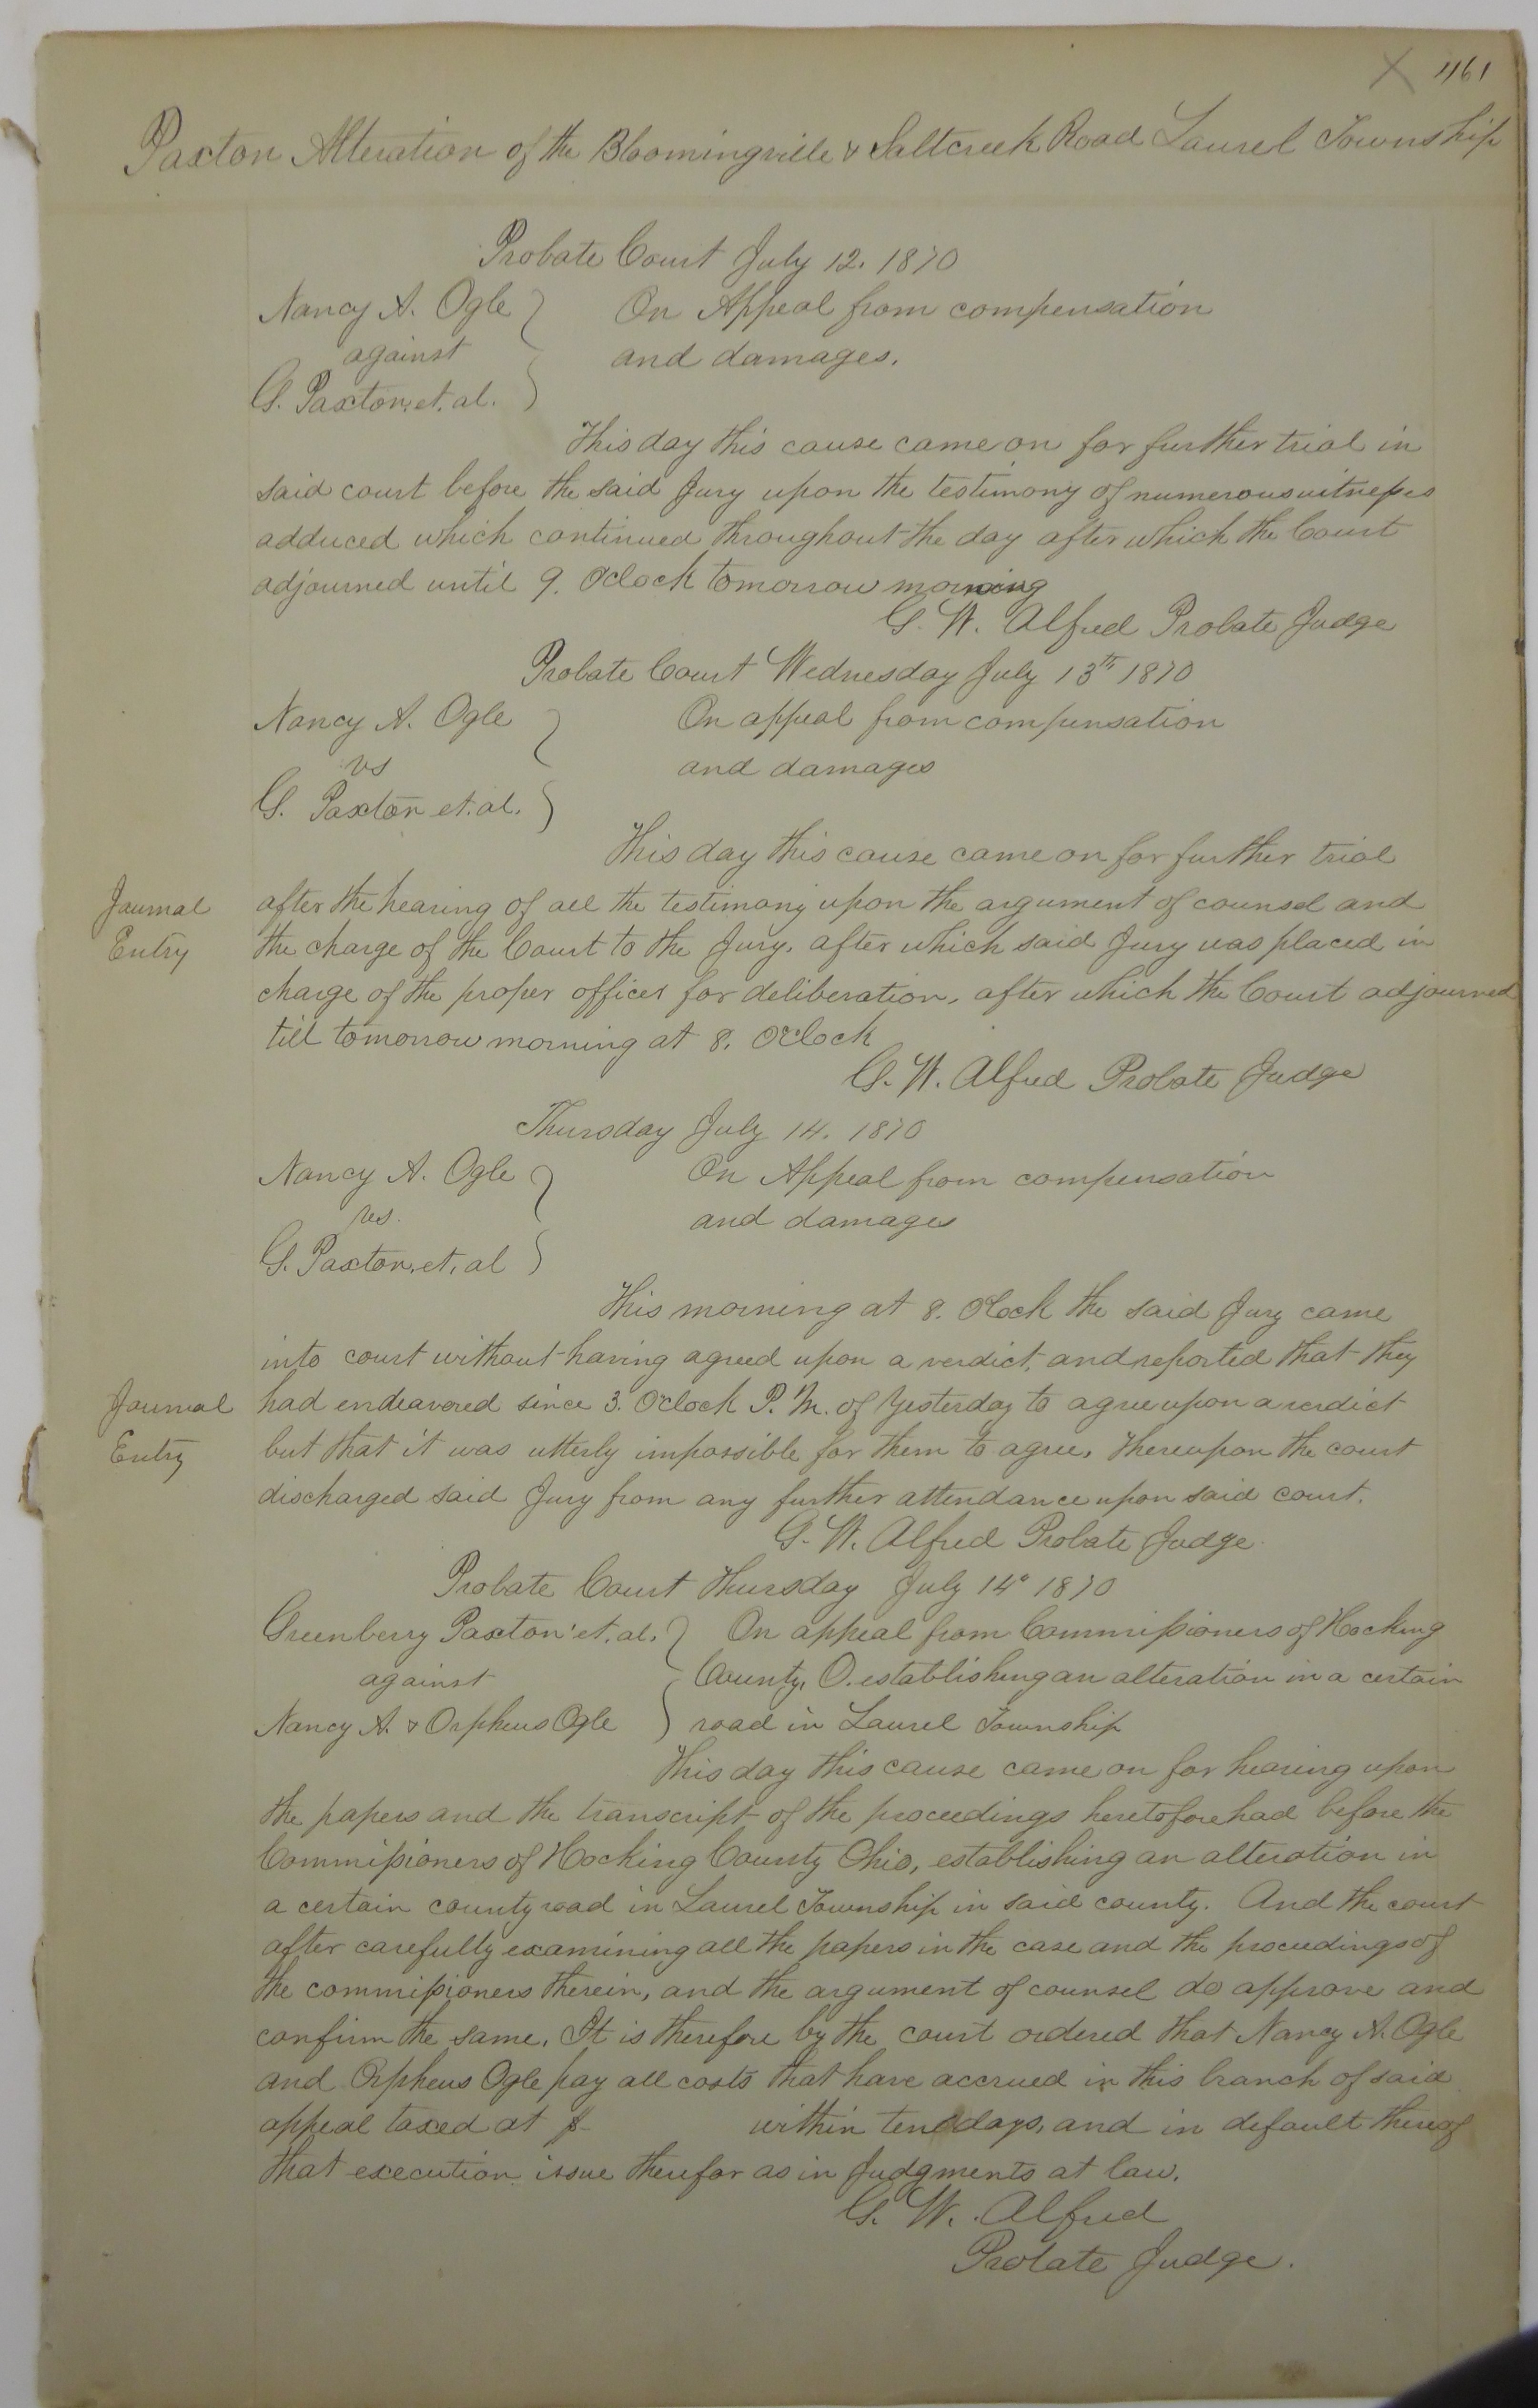 X 461
Paxton Alteration of the Bloomingville & Saltcreek Road Laurel Township
Probate Court July 12. 1870
Nancy A. Ogle } On Appeal from compensation
against and damages.
G. Paxton, et. al. }
This day this cause came on for further trial in
said court before the said Jury upon the testimony of numerous witnesses
adduced which continued throughout the day after which the Court
adjourned until 9. O'Clock tomorrow morning
G. W. Alfred Probate Judge
Probate Court Wednesday July 13th 1870
Nancy A. Ogle } On appeal from compensation
vs and damages
G. Paxton et. al. }
This day this cause came on for further trial
Journal after the hearing of all the testimony upon the argument of counsel and
Entry the charge of the Court to the Jury, after which said Jury was placed in
charge of the proper officer for deliberation, after which the Court adjourned
till tomorrow morning at 8. O'Clock
G. W. Alfred Probate Judge
Thursday July 14. 1870
Nancy A. Ogle } On Appeal from compensation
vs. and damages
G. Paxton, et, al }
This morning at 8. Oclock the said Jury came
into court without having agreed upon a verdict, and reported that they
Journal had endeavored since 3. O'Clock P. M. of Yesterday to agree upon a verdict
Entry but that it was utterly impossible for them to agree, thereupon the court
discharged said Jury from any further attendance upon said court.
G. W. Alfred Probate Judge.
Probate Court Thursday July 14" 1870
Greenberry Paxton et. al. } On appeal from Commissioners of Hocking
against County, O. establishing an alteration in a certain
Nancy A. & Orpheus Ogle } road in Laurel Township
This day this cause came on for hearing upon
the papers and the transcript of the proceedings heretofore had before the
Commissioners of Hocking County Ohio, establishing an alteration in
a certain county road in Laurel Township in said county. And the court
after carefully examining all the papers in the case and the proceedings of
the commissioners therein, and the argument of counsel do approve and
confirm the same. It is therefore by the court ordered that Nancy A. Ogle
and Orpheus Ogle pay all costs that have accrued in this branch of said
appeal taxed at $ within ten days, and in default thereof
that execution issue therefor as in Judgments at law.
G. W. Alfred
Probate Judge.